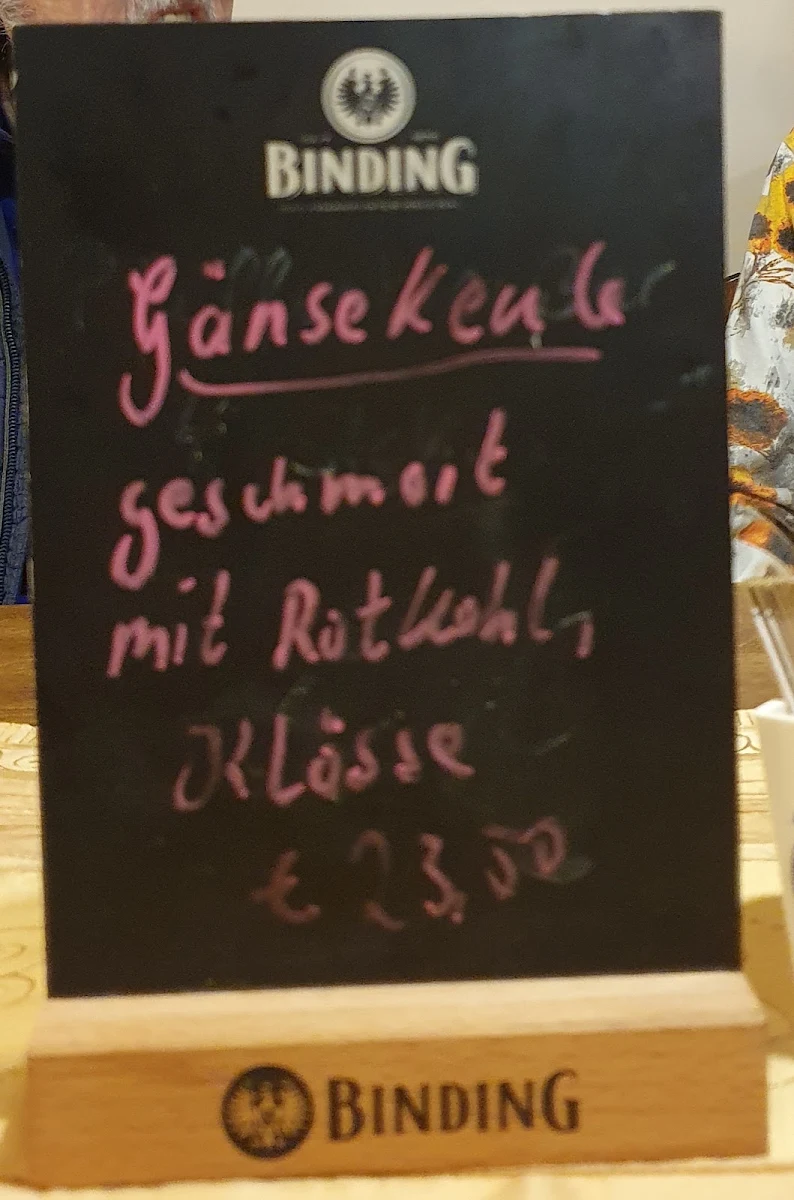 BINDING
Gänsekeule
geschmort
mit Rotkohl,
Klösse
€ 23,50
BINDING